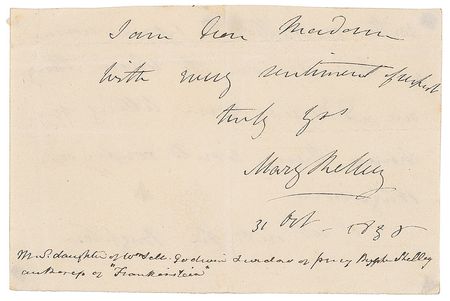 I am Dear Madam
with every sentiment of respect
truly yrs
Mary Shelley
31 Oct
daughter of Godwin & widow of Percy Bysshe Shelley
authoress of "Frankenstein"